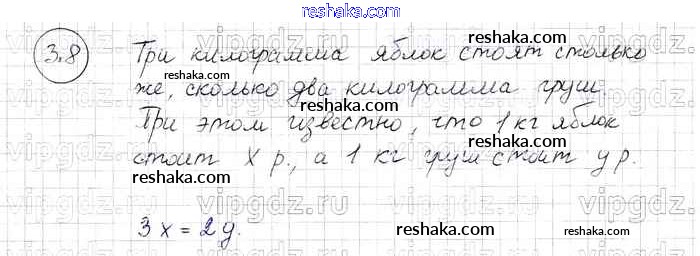 reshaka.com
3.8 Три килограмма яблок стоят столько
reshaka.com reshaka.com
же, сколько два килограмма груш.
При этом известно, что 1 кг яблок
стоит х р., а 1 кг груш стоит у р.
reshaka.com reshaka.com
vipgdz.ru vipgdz.ru vipgdz.ru
3х = 2у. reshaka.com
reshaka.com